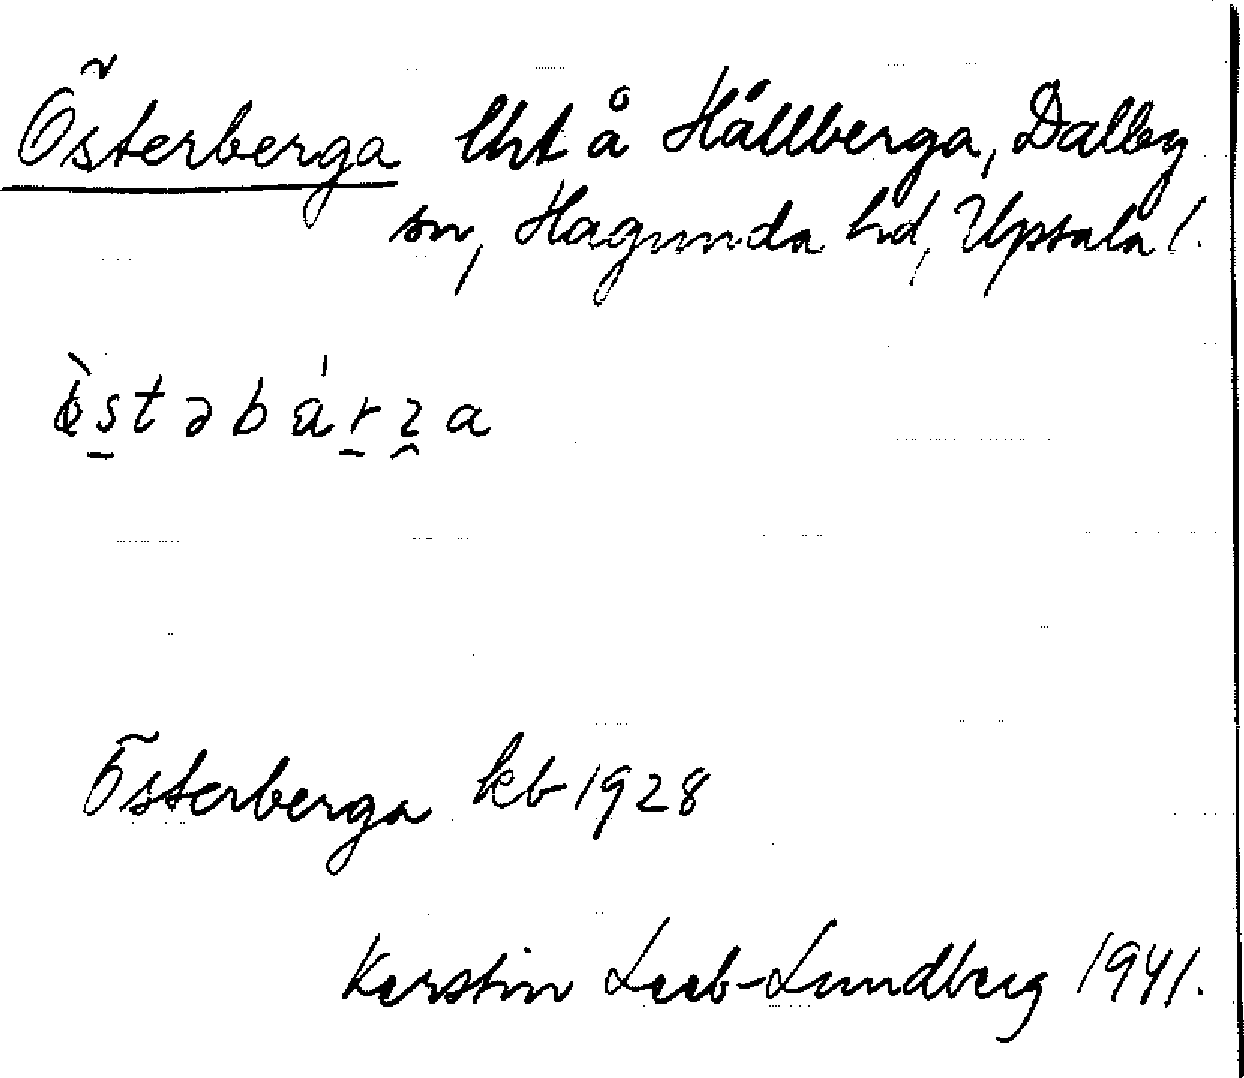 Österberga lht å Hållberga, Dalby
sn, Hagunda hd, Upsala l.
Österberga kb 1928
Kerstin Leeb-Lundberg 1941.